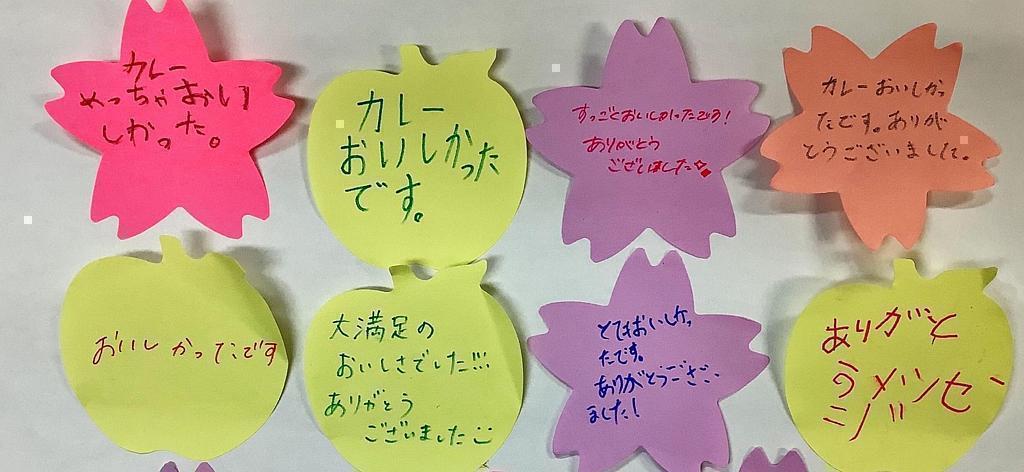 カレー
めっちゃおい
しかった。
カレー
おいしかった
です。
すっごとおいしかったです!
ありがとう
ございました
カレーおいしかっ
たです。ありが
とうございました。
おいしかったです
大満足の
おいしさでした!!!
ありがとう
ございました
とてもおいしかっ
たです。
ありがとうござい
ました!
ありがと
う